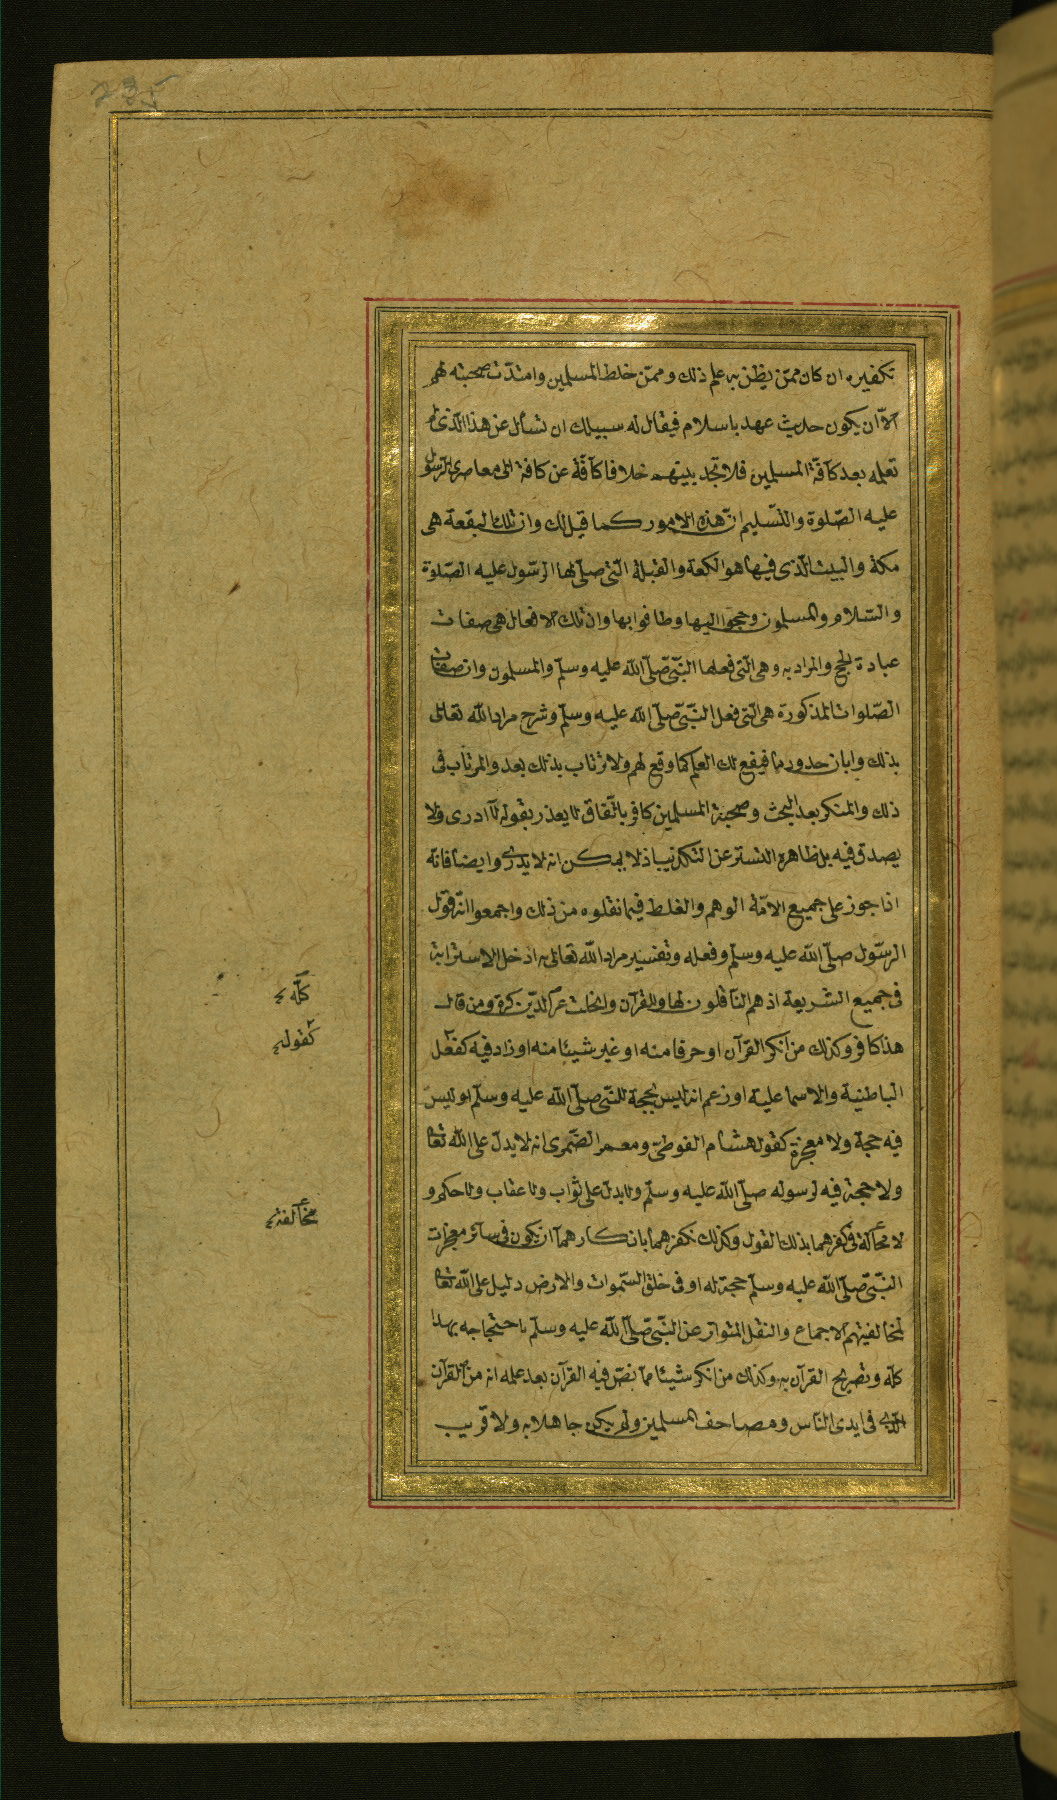 235
تكفيره ان كان ممّن يظن به علم ذلك وممّن خلط المسلمين وامتدّت صحبته لهم
الاّ ان يكون حديث عهد باسلام فيقال له سبيلك ان تسأل عن هذا الّذى لم
تعلمه بعد كآفّة المسلمين فلا تجد بينهم خلافا كآفّة عن كافة الى معاصرى الرّسول
عليه الصّلوة والتّسليم انّ هذه الامور كما قيل لك وان تلك البقعة هى
مكة والبيت الّذى فيها هو الكعبة والقبلة الّتى صلّى لها الرّسول عليه الصّلوة
والسّلام والمسلمون وحجّوا اليها وطافوا بها وان تلك الافعال هى صفات
عبادة الحج والمراد به وهى الّتى فعلها النّبىّ صلّى الله عليه وسلّم والمسلمون وان صفات
الصّلوات المذكورة هى الّتى فعل النّبىّ صلّى الله عليه وسلّم وشرح مراد الله تعالى
بذلك وابان حدودها فيقع لك العلم كما وقع لهم ولا ترتاب بذلك بعد والمرتاب فى
ذلك والمنكر بعد البحث وصحبة المسلمين كافر باتّفاق لا يعذر بقوله لآ ادرى ولا
يصدق فيه بل ظاهره التستر عن التكذيب اذ لا يمكن انه لا يدرى وايضا فانّه
اذا جوز على جميع الامّة الوهم والغلط فيما نقلوه من ذلك واجمعوا انّه قول
الرّسول صلّى الله عليه وسلّم وفعله وتفسير مراد الله تعالى به ادخل الاسترابة
فى جميع الشريعة اذ هم النّاقلون لها وللقرآن وانحلت عرى الدّين كرة ومن قال
هذا كافر وكذلك من انكر القرآن او حرفا منه او غير شيئا منه او زاد فيه كفعل
الباطنية والاسماعلية او زعم انه ليس بحجة للنّبى صلّى الله عليه وسلّم او ليس
فيه حجة ولا معجزة كقول هشام الفوطىّ ومعمر الضّمرى انه لا يدلّ على الله تعا
ولا حجة فيه لرسوله صلّى الله عليه وسلّم ولا يدل على ثواب ولا عقاب ولا حكم و
لا محآلة فى كفرهما بذلك القول وكذلك نكفرهما بانكارهمآ ان يكون فى سآئر معجزات
النّبىّ صلّى الله عليه وسلّم حجّة له او فى خلق السّموات والارض دليل على الله تعا
لمخالفتهم الاجماع والنقل المتواتر عن النّبىّ صلّى الله عليه وسلّم باحتجاجه بهذا
كلّه وتصريح القرآن به وكذلك من انكر شيئا ممّا نصّ فيه القرآن بعد علمه انه من القرآن
الّذى فى ايدى النّاس ومصاحف المسلمين ولم يكن جاهلا به ولا قريب
كلّه
كقوله
مخالفته